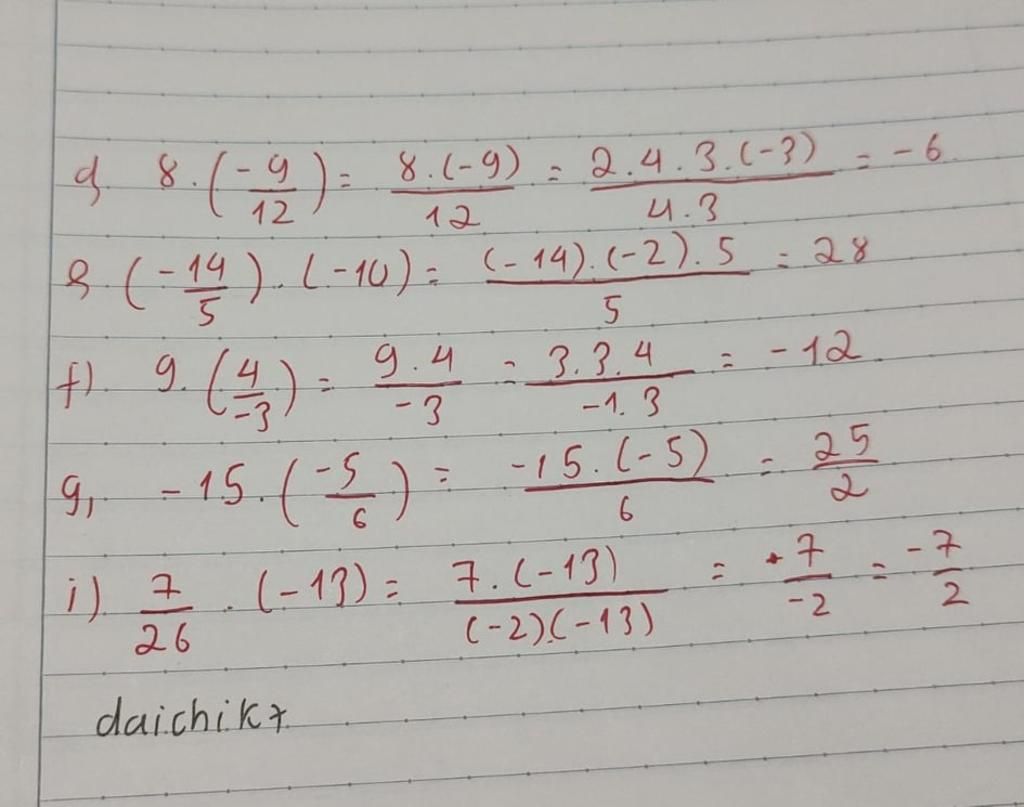 d, 8.(-9/12) = 8.(-9)/12 = 2.4.3.(-3)/4.3 = -6
e. (-14/5).(-10) = (-14).(-2).5/5 = 28
f). 9.(4/-3) = 9.4/-3 = 3.3.4/-1.3 = -12
g, -15.(-5/6) = -15.(-5)/6 = 25/2
i) 7/26 . (-13) = 7.(-13)/(-2)(-13) = 7/-2 = -7/2
daichik7